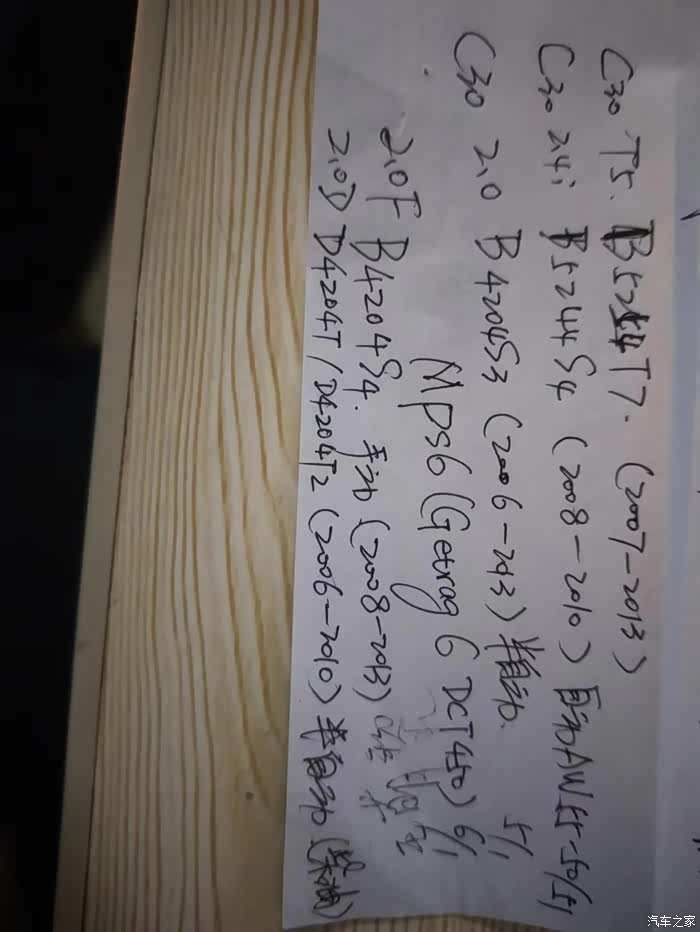 C30 T5. B5254T7. (2007-2013)
C30 2.4i B5244S4 (2008-2010) 自动AW55-50/51
5/1
C30 2.0 B4204S3 (2006-2013) 半自动.
MPS6 (Getrag 6 DCT450) 6/1
2.0F B4204S4. 手动 (2008-2013)
2.0D D4204T / D4204T2 (2006-2010) 半自动 (柴油)
汽车之家